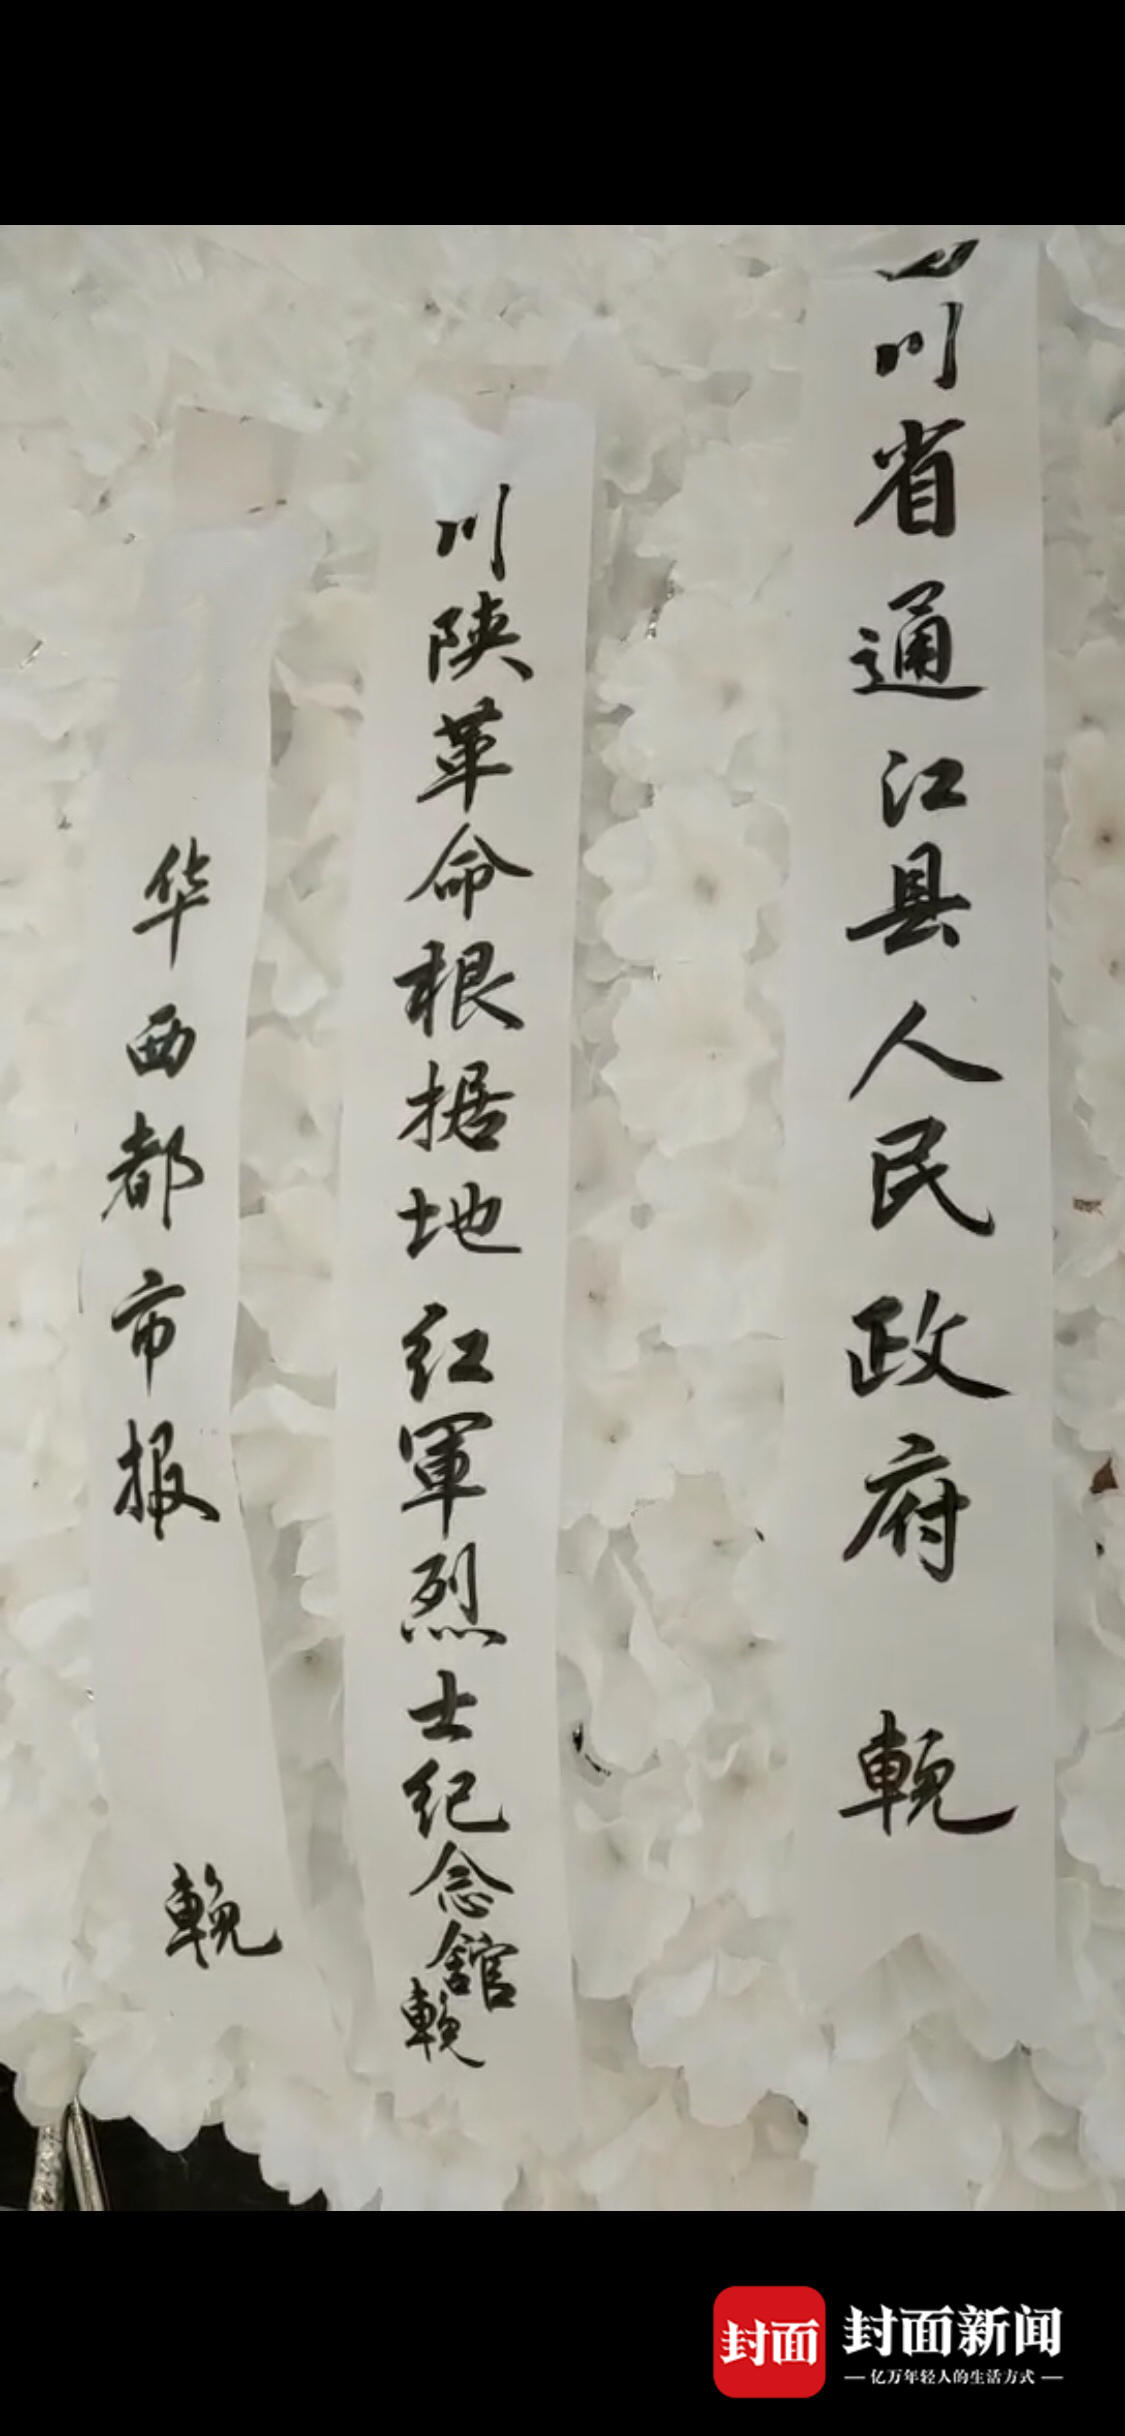 四川省通江县人民政府 輓
川陕革命根据地红軍烈士纪念館 輓
华西都市报 輓
封面
封面新闻
亿万年轻人的生活方式